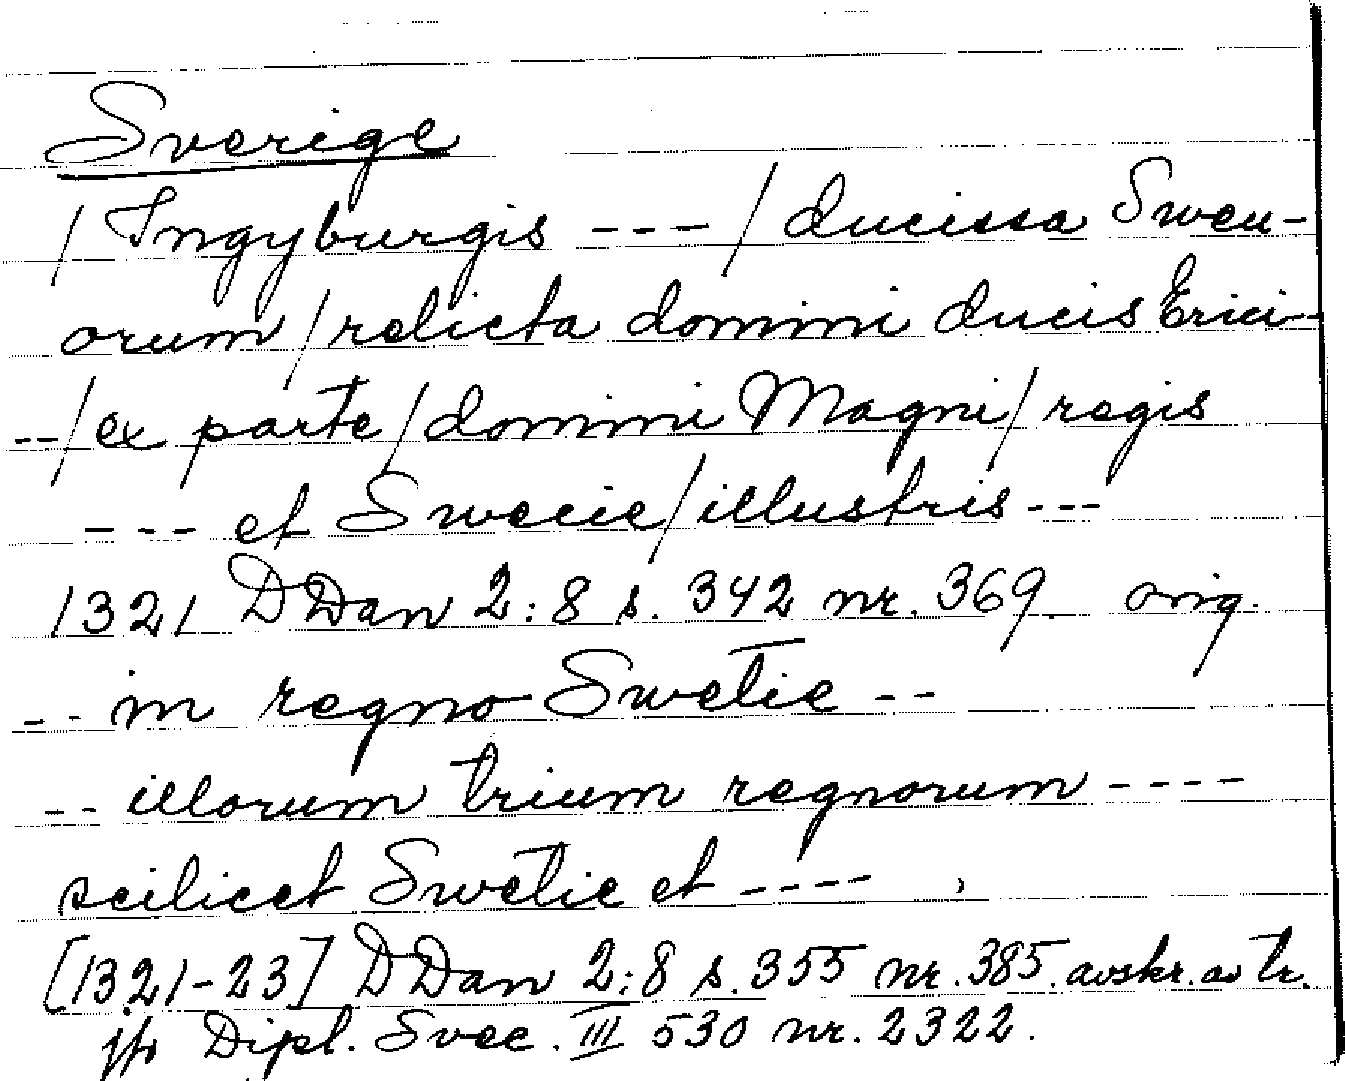 Sverige
/ Ingyburgis --- / ducissa Sweu-
orum / relicta domini ducis Erici --
-- / ex parte / domini Magni / regis
--- et Swecie / illustris ---
1321 DDan 2:8 s. 342 nr. 369. orig.
-- in regno Swetie --
-- illorum trium regnorum ----
scilicet Swetie et ----
[1321-23] DDan 2:8 s. 355 nr. 385. avskr. av tr.
jfr Dipl. Svec. III 530 nr. 2322.